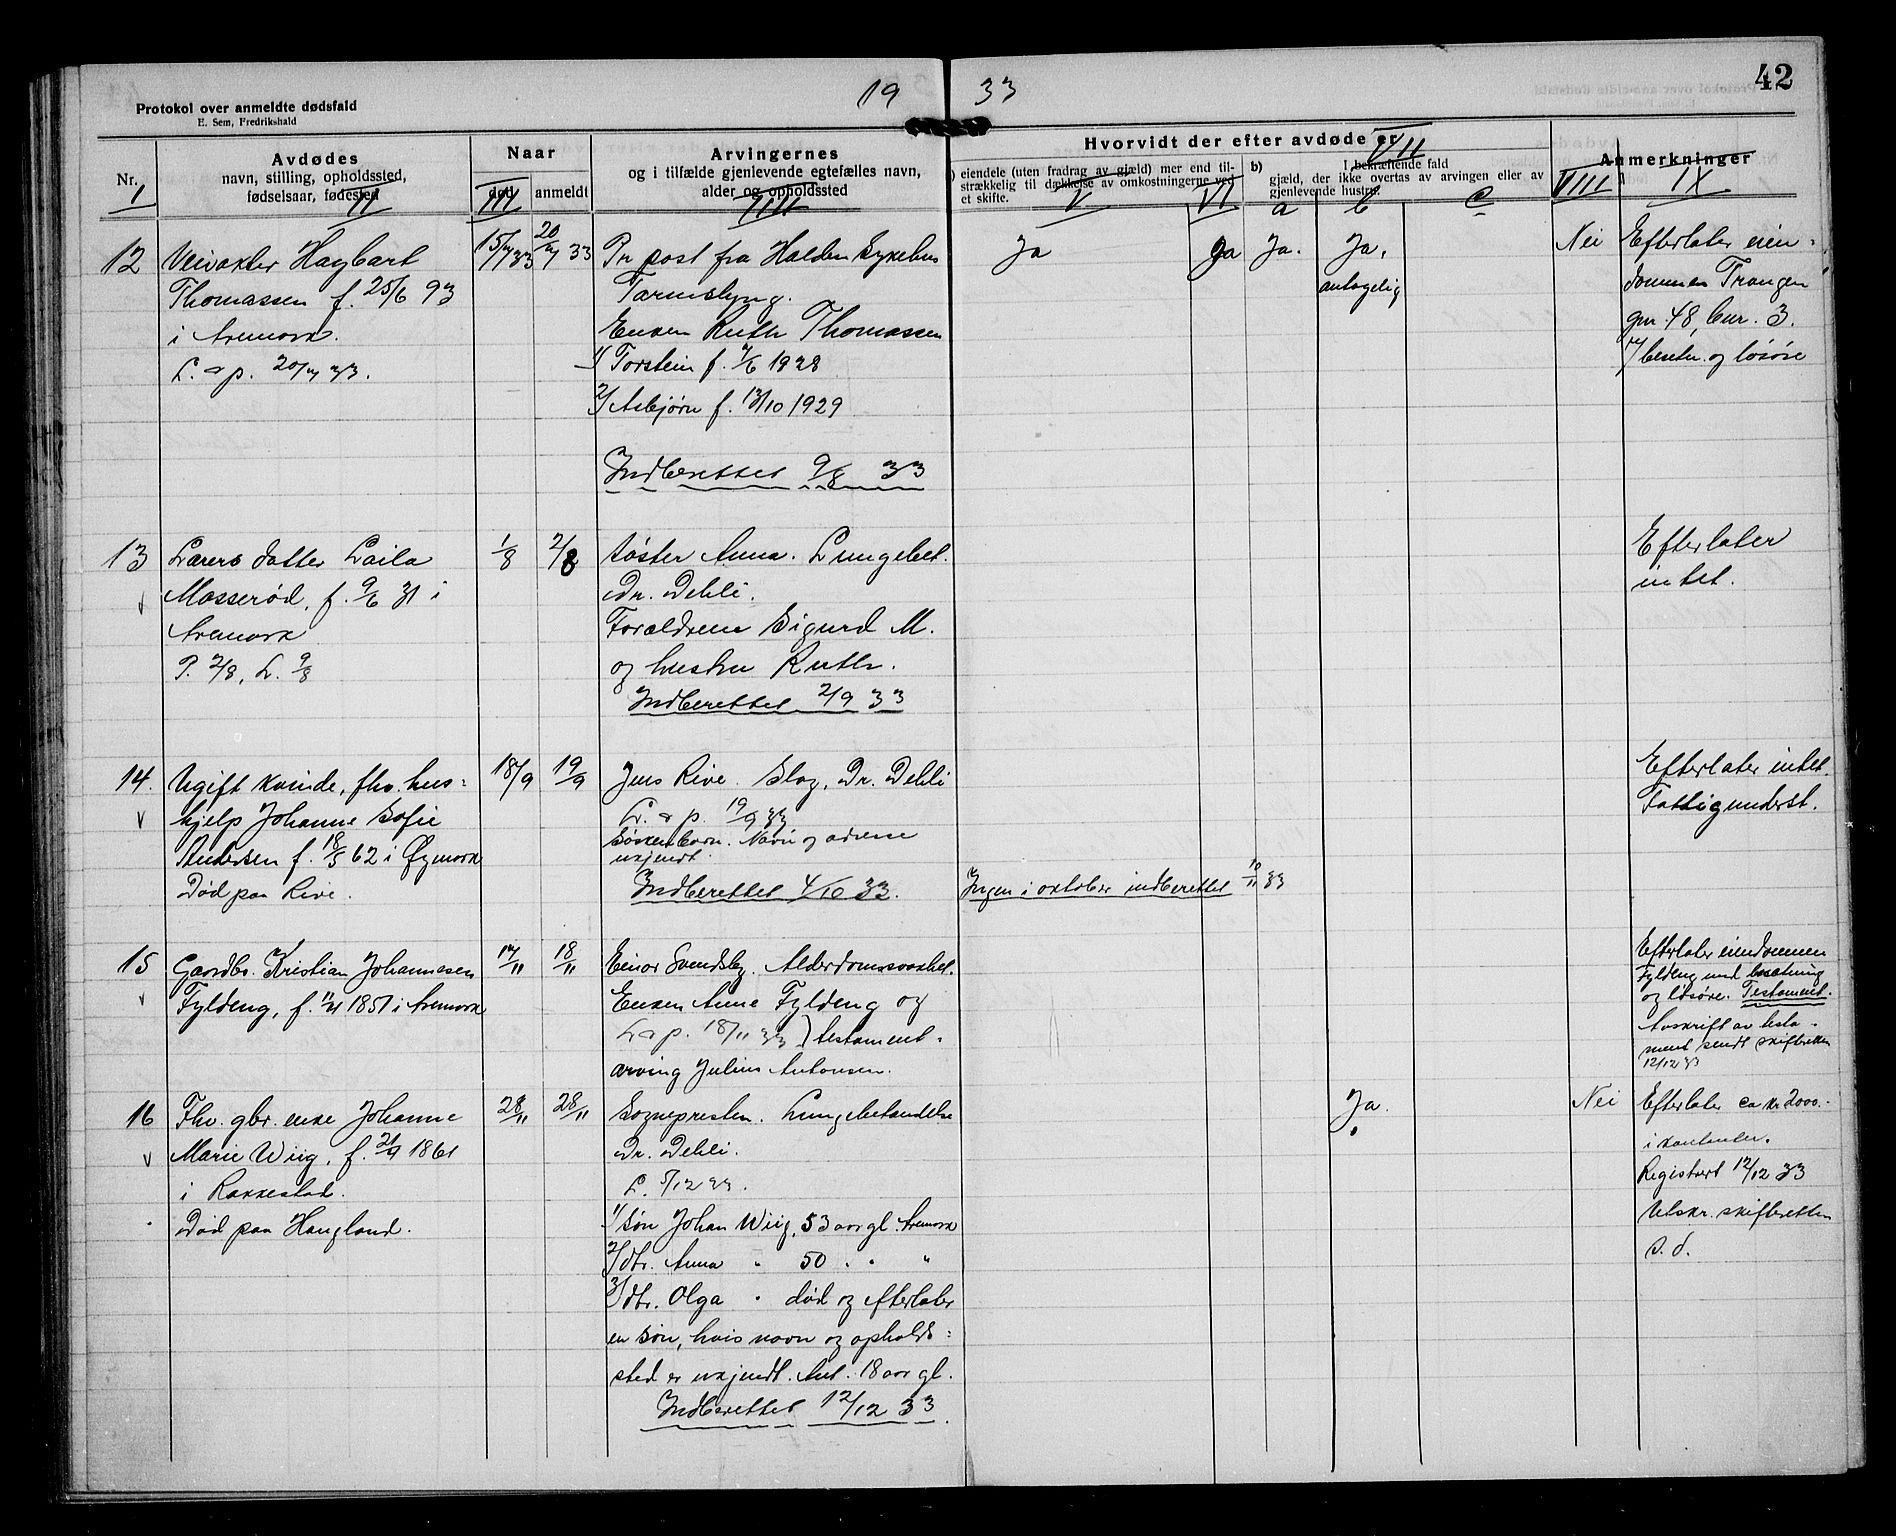 19 33
42
Protokol over anmeldte dødsfald
E. Sem, Fredrikshald
Nr.
I
Avdødes
navn, stilling, opholdssted,
fødselsaar, fødested
II
Naar
død
anmeldt
III
Arvingernes
og i tilfælde gjenlevende egtefælles navn,
alder og opholdssted
IIII
Hvorvidt der efter avdøde er
) eiendele (uten fradrag av gjæld) mer end til-
strækkelig til dækkelse av omkostningerne ved
et skifte.
V
VI
b)
I bekræftende fald
gjæld, der ikke overtas av arvingen eller av
gjenlevende hustru.
VII
a
b
c
VIII
Anmerkninger
IX
12
Veivokter Haybart
Thomassen f. 25/6 93
i Aremark.
L. o p. 20/7 33.
15/7 33
20/7 33
Pr post fra Halden Sykehus
Tarmslyng.
Enken Ruth Thomassen
1/ Torstein f. 7/6 1928
2/ Asbjørn f. 13/10 1929
Indberettet 9/8 33
Ja
Ja
Ja.
Ja,
antagelig
Nei
Efterlater eien-
dommen Trangen
gnr 48, bnr. 3.
m/ besetn. og løsøre
13
Lærers datter Laila
Mosserød, f. 9/6 31 i
Aremark
P. 2/8, L. 9/8
1/8
2/8
søster Anna. Lungebet.
Dr. Dehli.
Forældrene Sigurd M.
og hustru Ruth.
Indberettet 2/9 33
Efterlater
intet.
14.
Ugift kvinde, fhv. hus-
hjelp Johanne Sofie
Andersen f. 18/5 62 i Øymark
Død paa Rive.
18/9
19/9
Jens Rive. Slag, Dr. Dehli
L. o p. 19/9 33
Søskenbarn. Navn og adresse
ukjendt.
Indberettet 4/10 33.
Ingen i oktober indberettet 10/11 33
Efterlater intet.
Fattigunderst.
15
Gaardbr. Kristian Johannesen
Fyldeng, f. 11/4 1851 i Aremark
17/11
18/11
Einar Svendsby. Alderdomssvakhet.
Enken Anne Fyldeng og
L o p. 18/11 33 ) testament-
arving Julius Antonsen.
Efterlater eiendommen
Fyldeng med besætning
og løsøre. Testament.
Avskrift av testa-
ment sendt skifteretten
12/12 33
16
Fhv. gbr. enke Johanne
Marie Wiig, f. 21/9 1861
i Rakkestad.
Død paa Haugland.
28/11
28/11
Sognepresten. Lungebetændelse
Dr. Dehli.
L. 5/12 33.
1/ søn Johan Wiig, 53 aar gl. Aremark
2/ dtr. Anna " 50 " " "
3/ dtr. Olga " død og efterlater
en søn, hvis navn og opholds-
sted er ukjendt. Ant. 18 aar gl.
Indberettet 12/12 33
Ja.
Nei
Efterlater ca kr 2000.-
i kontanter.
Registrert 12/12 33
Utskr. skifteretten
s. d.